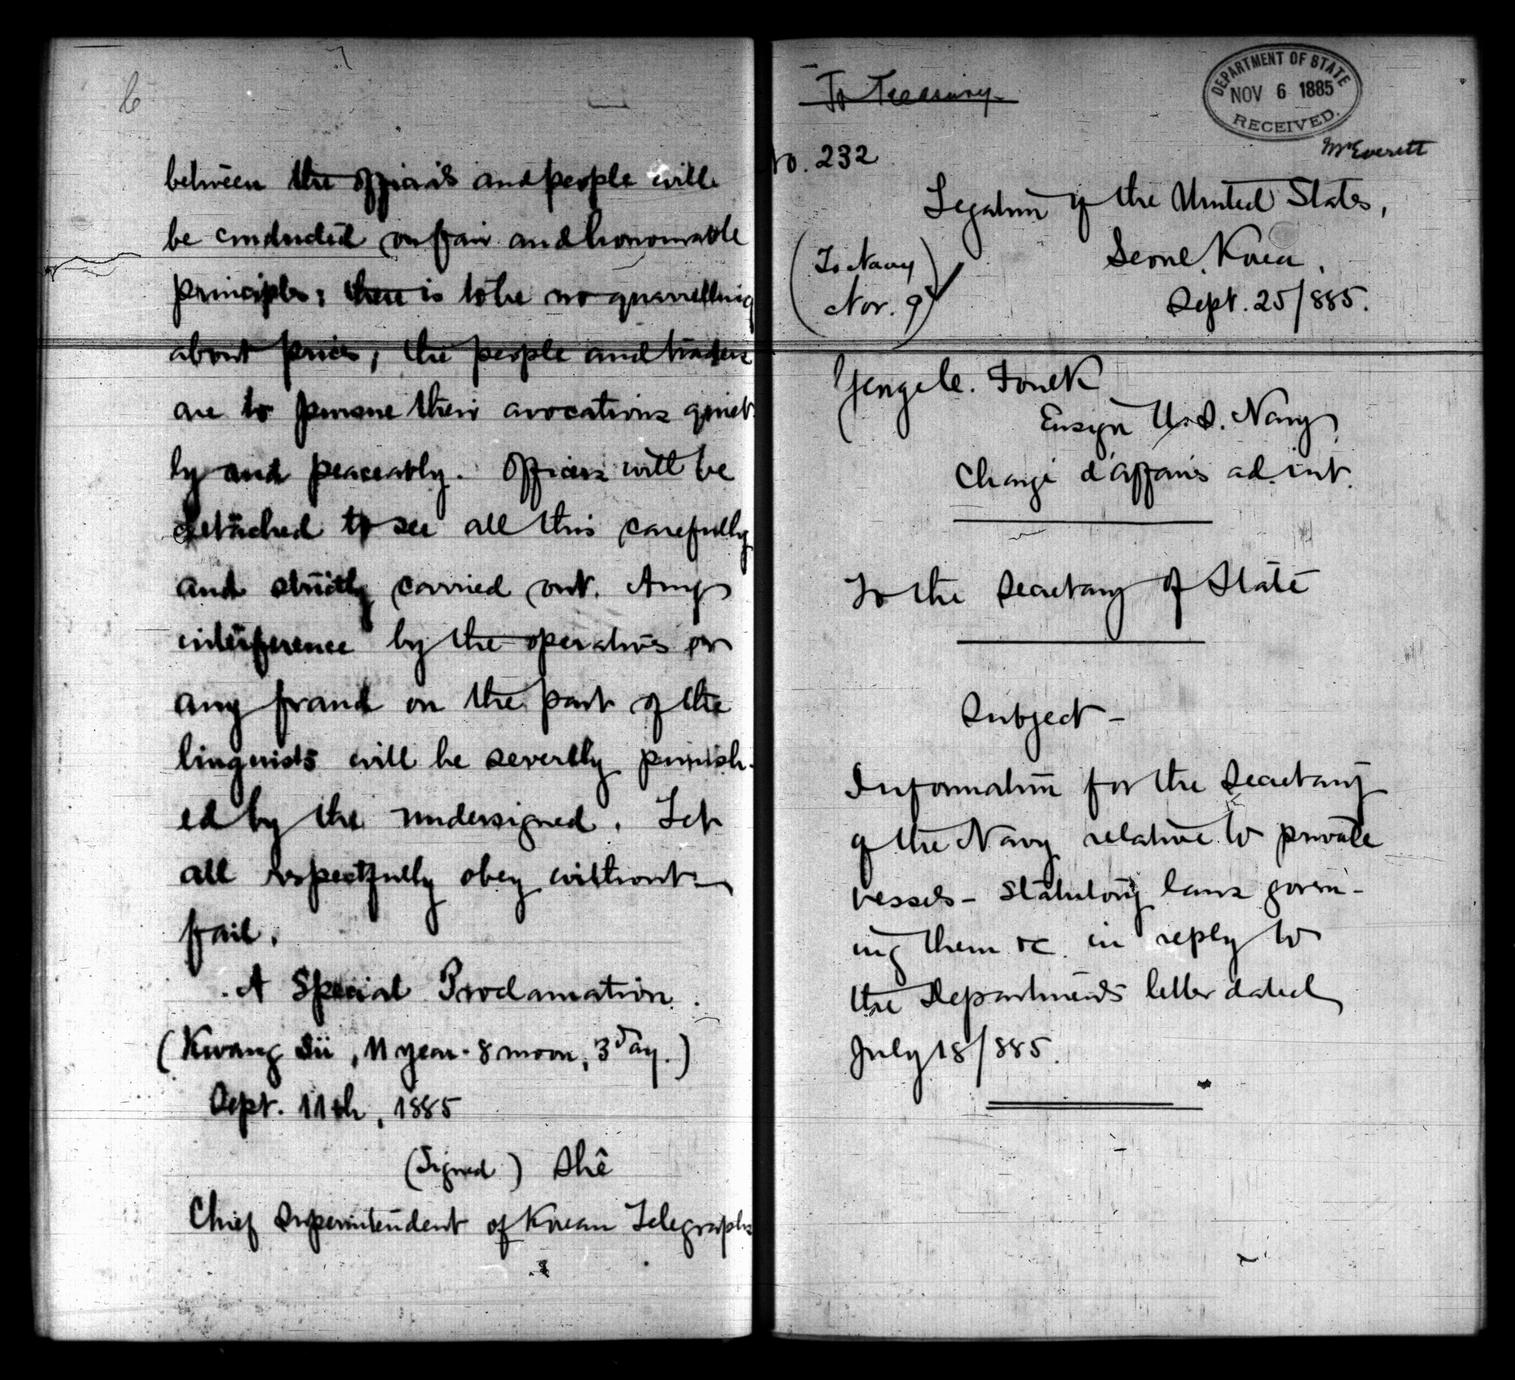 6
between the officials and people will
be conducted on fair and honourable
principles; there is to be no quarrelling
about prices; the people and traders
are to pursue their avocations quiet
ly and peaceably. Officers will be
detached to see all this carefully
and strictly carried out. Any
interference by the operatives or
any fraud on the part of the
linguists will be severely punish-
ed by the undersigned. Let
all respectfully obey without
fail.
A Special Proclamation.
(Kwang Sü, 11 year. 8 moon, 3 day.)
Sept. 11th, 1885
(Signed) Shê
Chief Superintendent of Korean Telegraphs
To Treasury.
DEPARTMENT OF STATE
NOV 6 1885
RECEIVED.
Mr Everett
No. 232
Legation of the United States,
Seoul, Korea,
Sept. 25/885.
(To Navy
Nov. 9)
George C. Foulk
Ensign U.S. Navy
Chargé d'affaires ad. int.
To the Secretary of State
Subject-
Information for the Secretary
of the Navy relative to private
vessels - Statutory laws govern-
ing them &c. in reply to
the Department's letter dated
July 18/885.